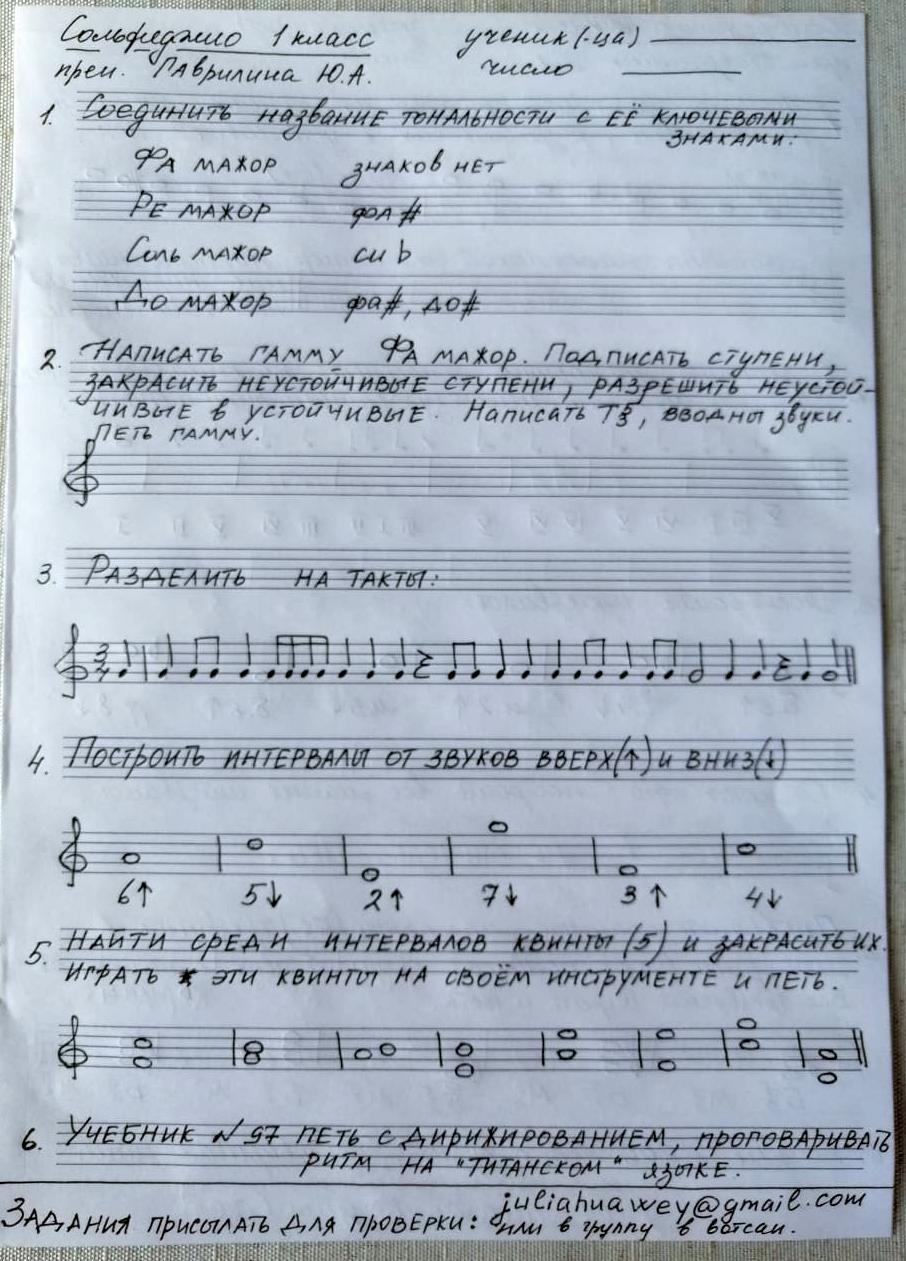 Сольфеджио 1 класс ученик(-ца)
преп. Гаврилина Ю.А. число
1. Соединить название тональности с её ключевыми
знаками:
Фа мажор знаков нет
Ре мажор фа#
Соль мажор си b
До мажор фа#, до#
2. Написать гамму Фа мажор. Подписать ступени,
закрасить неустойчивые ступени, разрешить неустой-
чивые в устойчивые. Написать Т5/3, вводны звуки.
Петь гамму.
3. Разделить на такты:
3/4
4. Построить интервалы от звуков вверх(↑) и вниз(↓)
6↑ 5↓ 2↑ 7↓ 3↑ 4↓
5. Найти среди интервалов квинты (5) и закрасить их.
Играть эти квинты на своём инструменте и петь.
6. Учебник №57 петь с дирижированием, проговаривать
ритм на "титанском" языке.
juliahuawey@gmail.com
Задания присылать для проверки: или в группу в ватсап.